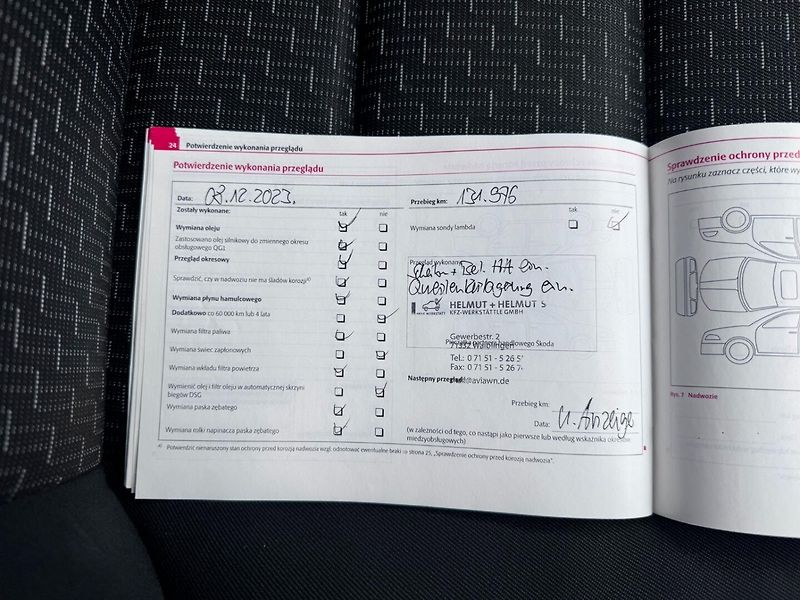 24 Potwierdzenie wykonania przeglądu
Potwierdzenie wykonania przeglądu
Data: 08.12.2023.
Zostały wykonane: tak nie
Wymiana oleju
Zastosowano olej silnikowy do zmiennego okresu
obsługowego QG1
Przegląd okresowy
Sprawdzić, czy w nadwoziu nie ma śladów korozji a)
Wymiana płynu hamulcowego
Dodatkowo co 60 000 km lub 4 lata
Wymiana filtra paliwa
Wymiana świec zapłonowych
Wymiana wkładu filtra powietrza
Wymienić olej i filtr oleju w automatycznej skrzyni
biegów DSG
Wymiana paska zębatego
Wymiana rolki napinacza paska zębatego
Przebieg km: 131.976
tak nie
Wymiana sondy lambda
Przegląd wykonany
+ Bel. HA ern.
Querlenkerlagerung ern.
HELMUT + HELMUT S
KFZ-WERKSTÄTTLE GMBH
Gewerbestr. 2
71332 Waiblingen
Pieczątka partnera handlowego Škoda
Tel.: 0 71 51 - 5 26 5
Fax: 0 71 51 - 5 26 7
Następny przegląd: @aviawn.de
Przebieg km:
Data: n. Anzeige
(w zależności od tego, co nastąpi jako pierwsze lub według wskaźnika okresów
międzyobsługowych)
a) Potwierdzić nienaruszony stan ochrony przed korozją nadwozia wzgl. odnotować ewentualne braki ⇒ strona 25, „Sprawdzenie ochrony przed korozją nadwozia".
Sprawdzenie ochrony przed
Na rysunku zaznacz części, które wy
Rys. 7 Nadwozie